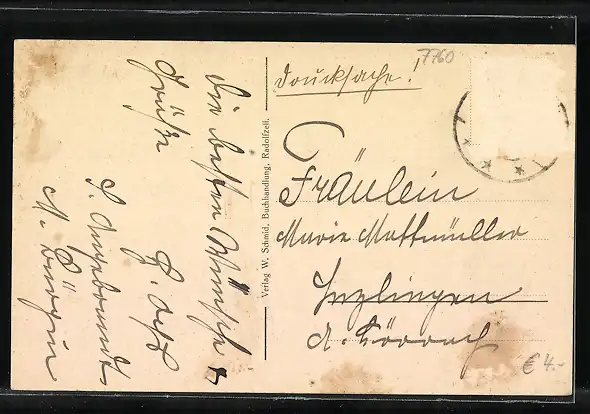 7760
Drucksache!
Fräulein
Marie Mattmüller
Inzlingen
A. Lörrach
Verlag W. Schmid, Buchhandlung, Radolfzell.
Die besten Wünsche &
Grüße
M. Bürgin
€ 4.-